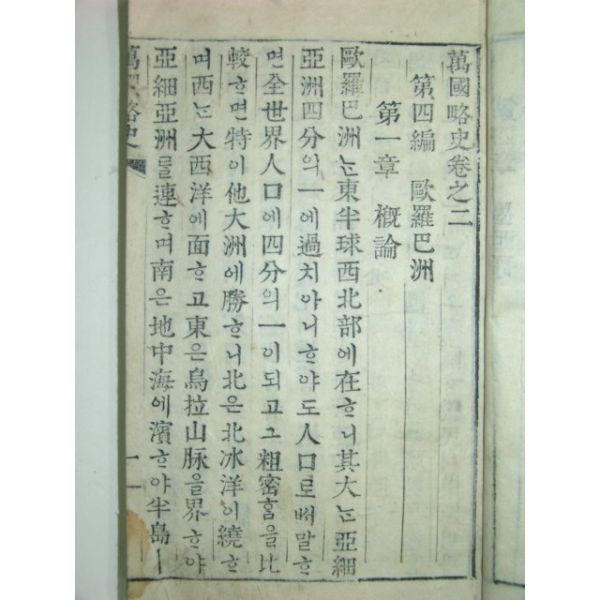 萬國略史卷之二
第四編 歐羅巴洲
第一章 槪論
歐羅巴洲ᄂᆞᆫ東半球西北部에在ᄒᆞ니其大ᄂᆞᆫ亞細
亞洲四分의一에過치아니ᄒᆞ야도人口로ᄡᅥ말ᄒᆞ
면全世界人口에四分의一이되고그粗密홈을比
較ᄒᆞ면特이他大洲에勝ᄒᆞ니北은北冰洋이繞ᄒᆞ
며西ᄂᆞᆫ大西洋에面ᄒᆞ고東은烏拉山脉을界ᄒᆞ야
亞細亞洲ᄅᆞᆯ連ᄒᆞ며南은地中海에濱ᄒᆞ야半島ㅣ
萬國略史
一